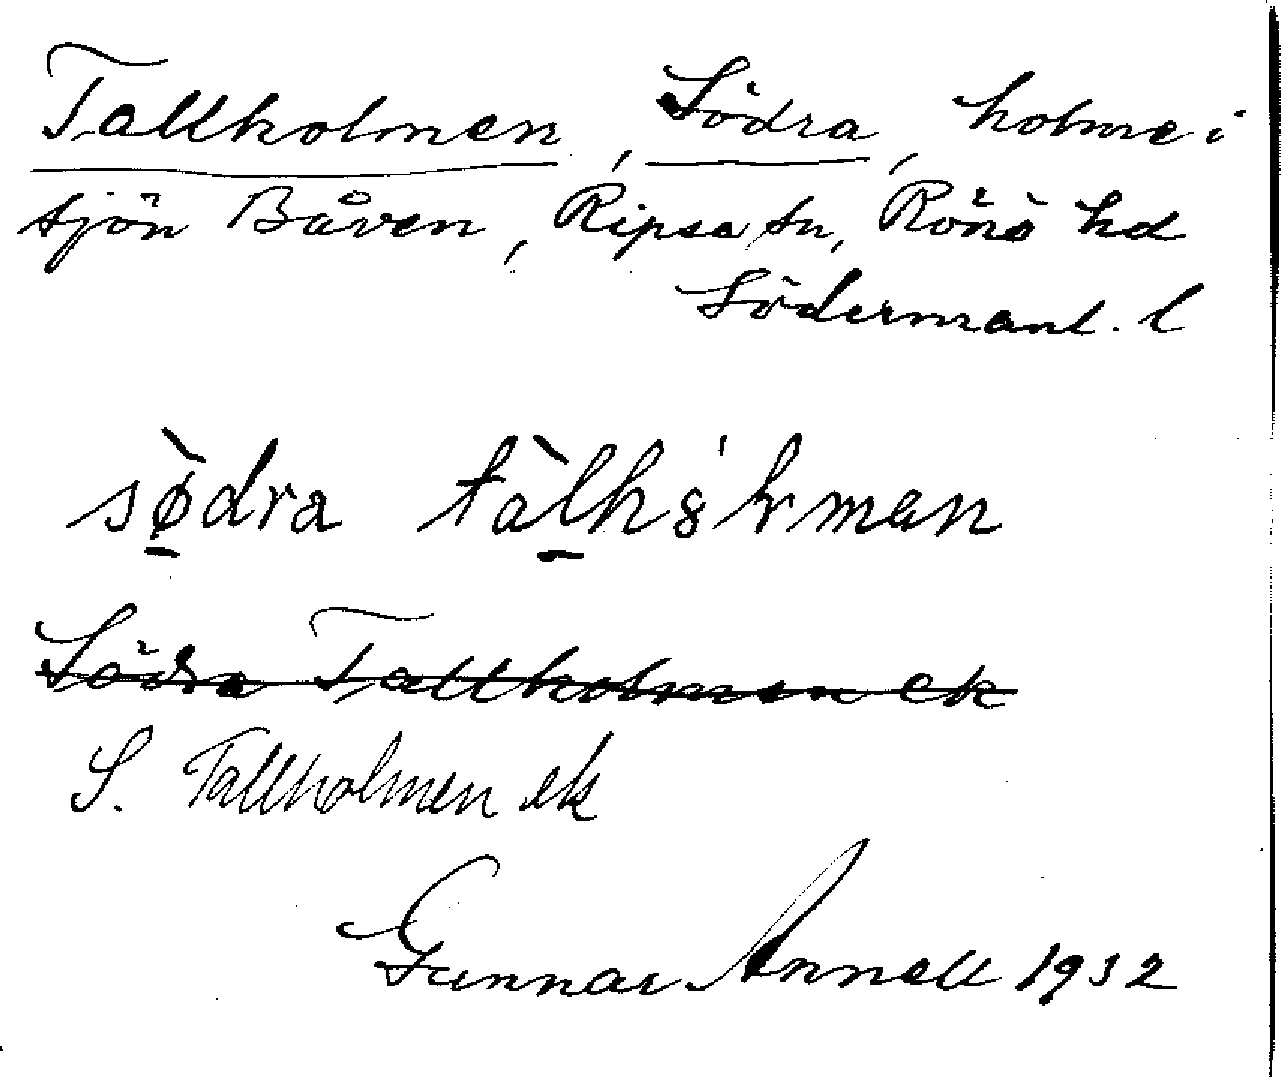 Tallholmen, Södra, holme i
sjön Båven, Ripsa sn, Rönö hd
Södermanl. l
södra talhólman
Södra Tallholmen ek
S. Tallholmen ek
Gunnar Annell 1932